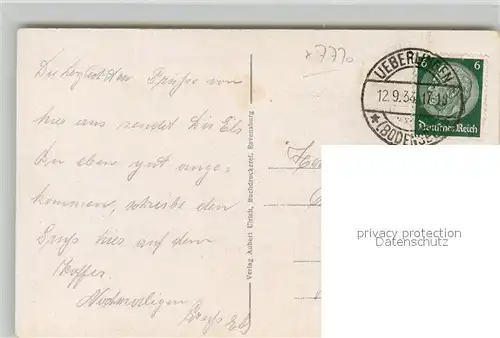 Die herzlichsten Grüsse von
hier aus sendet Dir Els
Bin eben gut ange-
kommen, schreibe den
Gruss hier auf dem
Koffer.
Nochmaligen
Gruss Els
Verlag Aubert Ulrich, Buchdruckerei, Ravensburg
*7770
UEBERLINGEN
12.9.34
(BODENSEE)
6
Deutsches Reich
privacy protection
Datenschutz